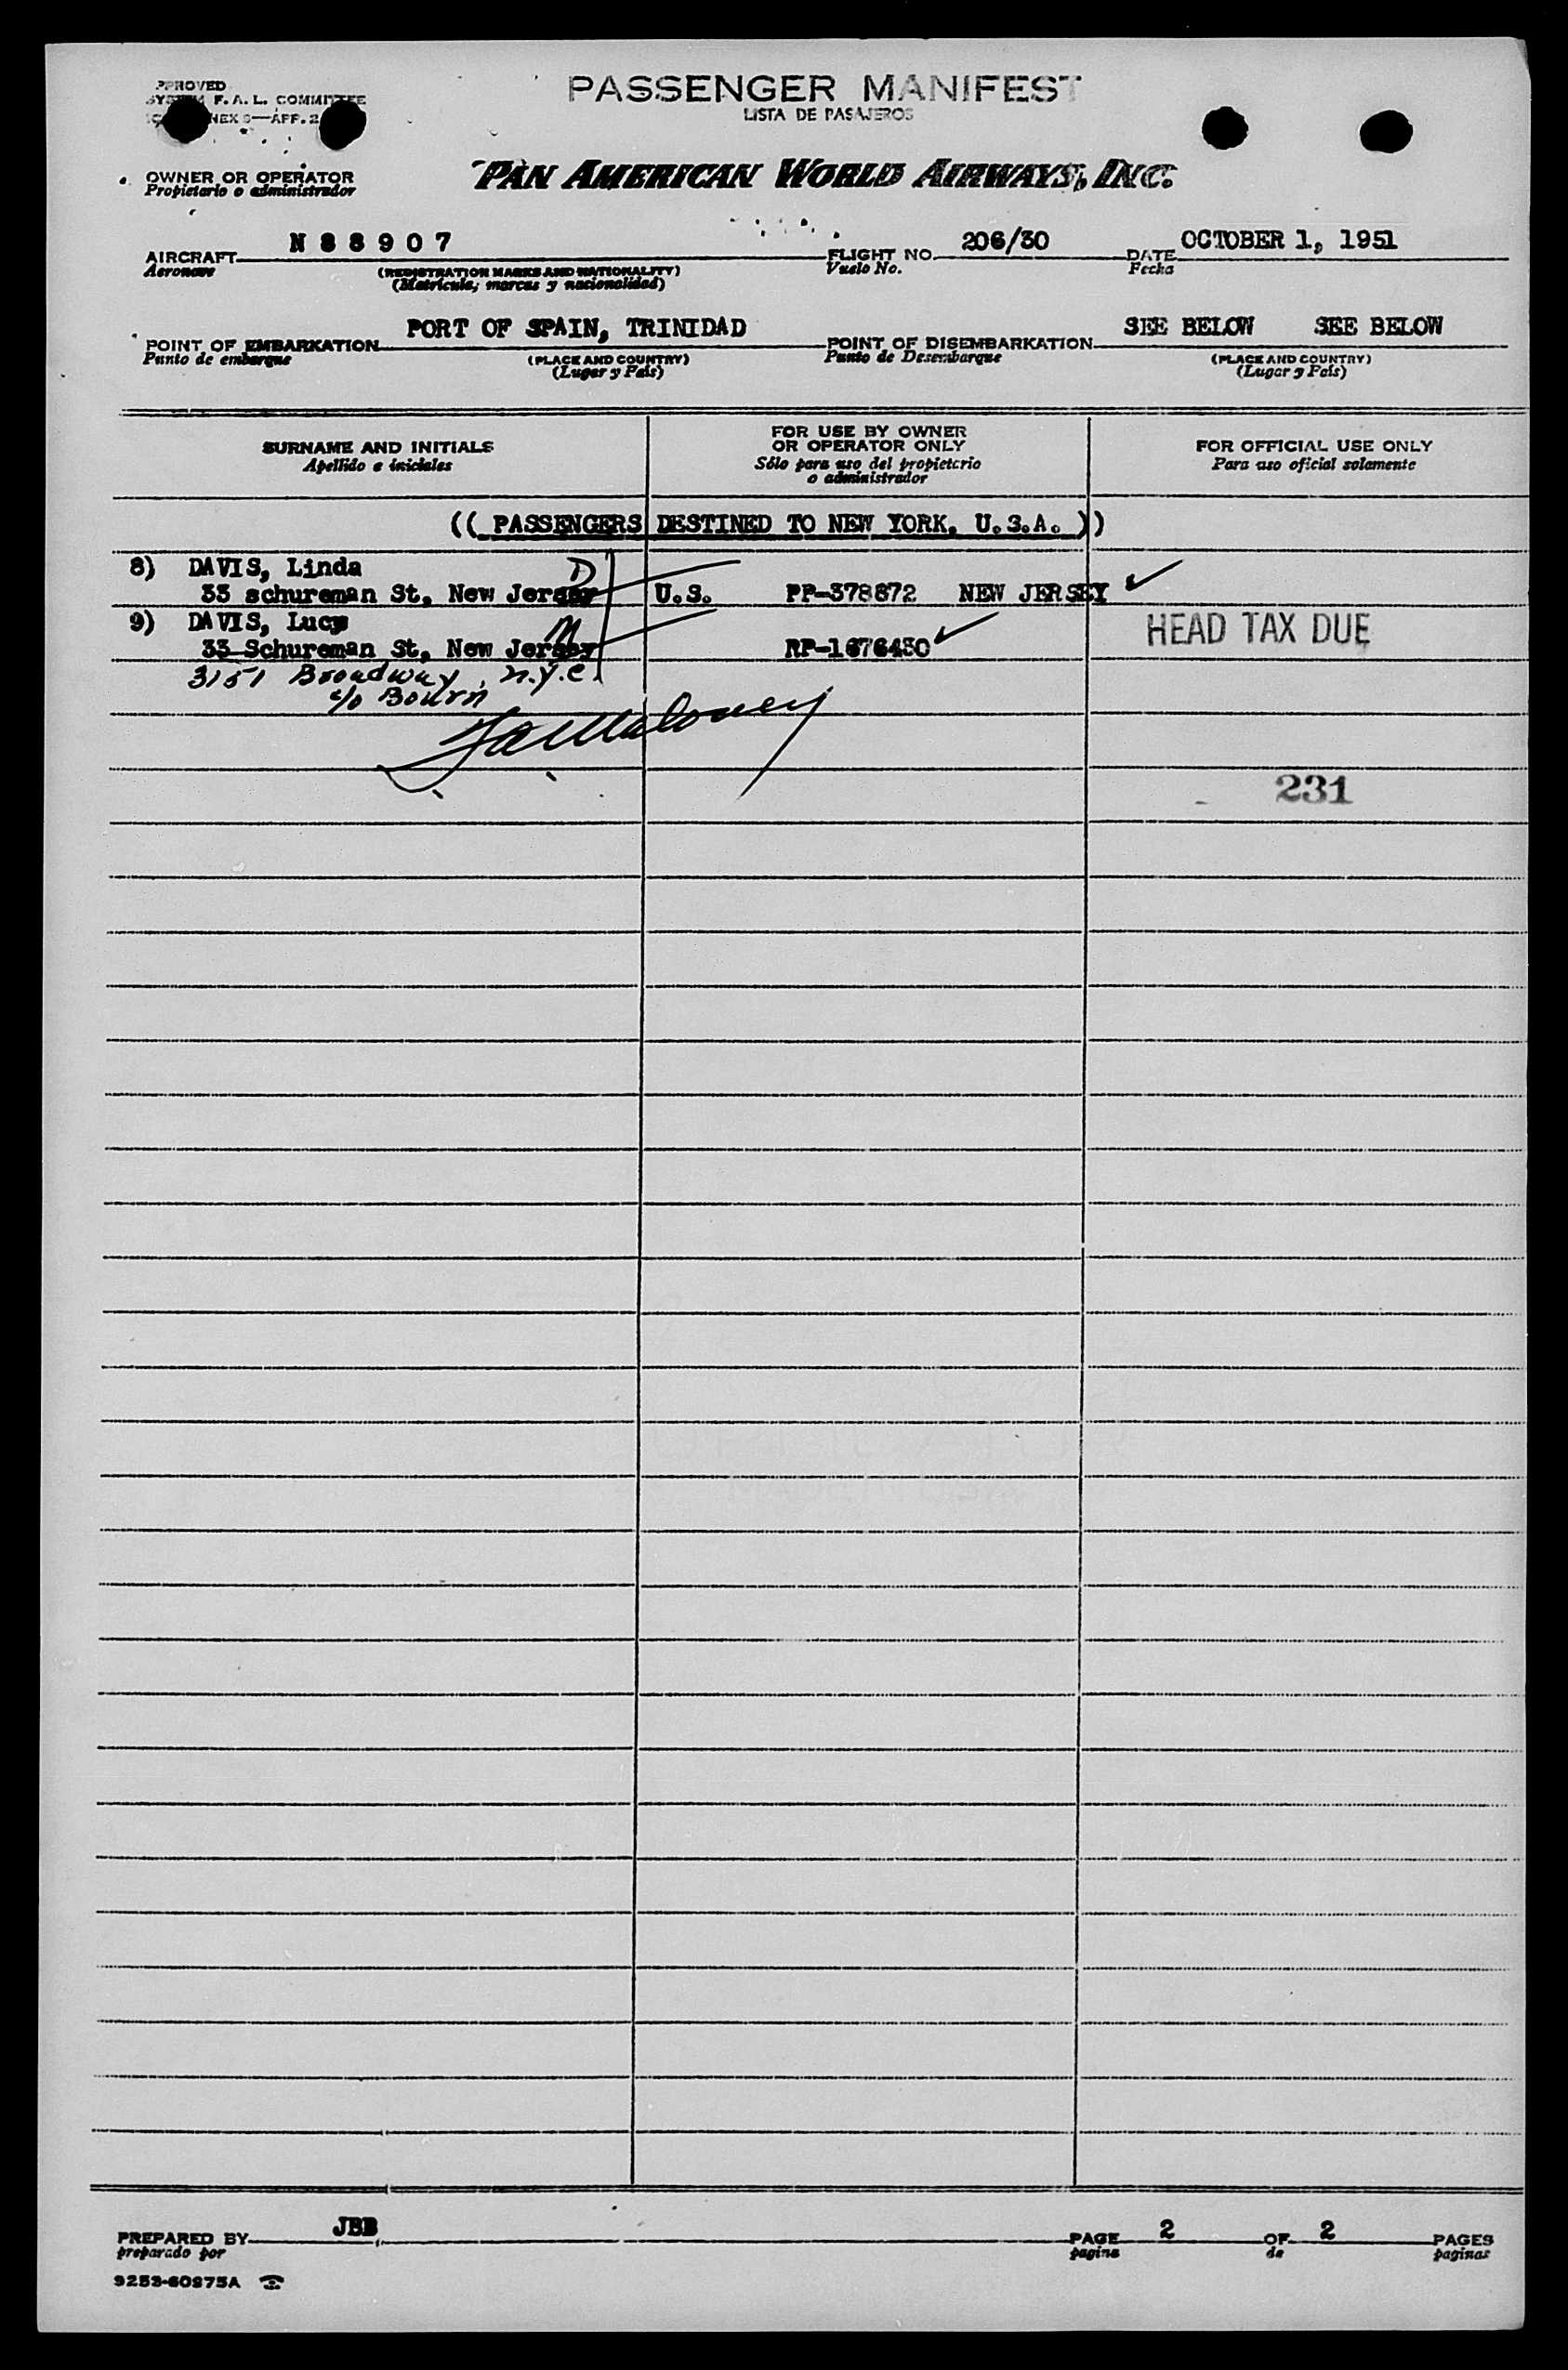 PASSENGER MANIFEST
LISTA DE PASAJEROS
PPROVED
F. A. L. COMMITTEE
NEX 9—APP. 2
OWNER OR OPERATOR
Propietario o administrador
PAN AMERICAN WORLD AIRWAYS, INC.
AIRCRAFT N 8 8 9 0 7 FLIGHT NO. 206/30 DATE OCTOBER 1, 1951
Aeronave (REGISTRATION MARKS AND NATIONALITY) Vuelo No. Fecha
(Matrícula, marcas y nacionalidad)
POINT OF EMBARKATION PORT OF SPAIN, TRINIDAD POINT OF DISEMBARKATION SEE BELOW SEE BELOW
Punto de embarque (PLACE AND COUNTRY) Punto de Desembarque (PLACE AND COUNTRY)
(Lugar y País) (Lugar y País)
SURNAME AND INITIALS
Apellido e iniciales
FOR USE BY OWNER
OR OPERATOR ONLY
Sólo para uso del propietario
o administrador
FOR OFFICIAL USE ONLY
Para uso oficial solamente
(( PASSENGERS DESTINED TO NEW YORK, U.S.A. ))
8) DAVIS, Linda D
33 schureman St, New Jersey U.S. PP-378872 NEW JERSEY ✓
9) DAVIS, Lucy M
33 Schureman St, New Jersey RP-1676430 ✓ HEAD TAX DUE
3151 Broadway, n.y.c.
c/o Bourn
231
PREPARED BY JBB PAGE 2 OF 2 PAGES
preparado por pagina de paginas
9253-60975A